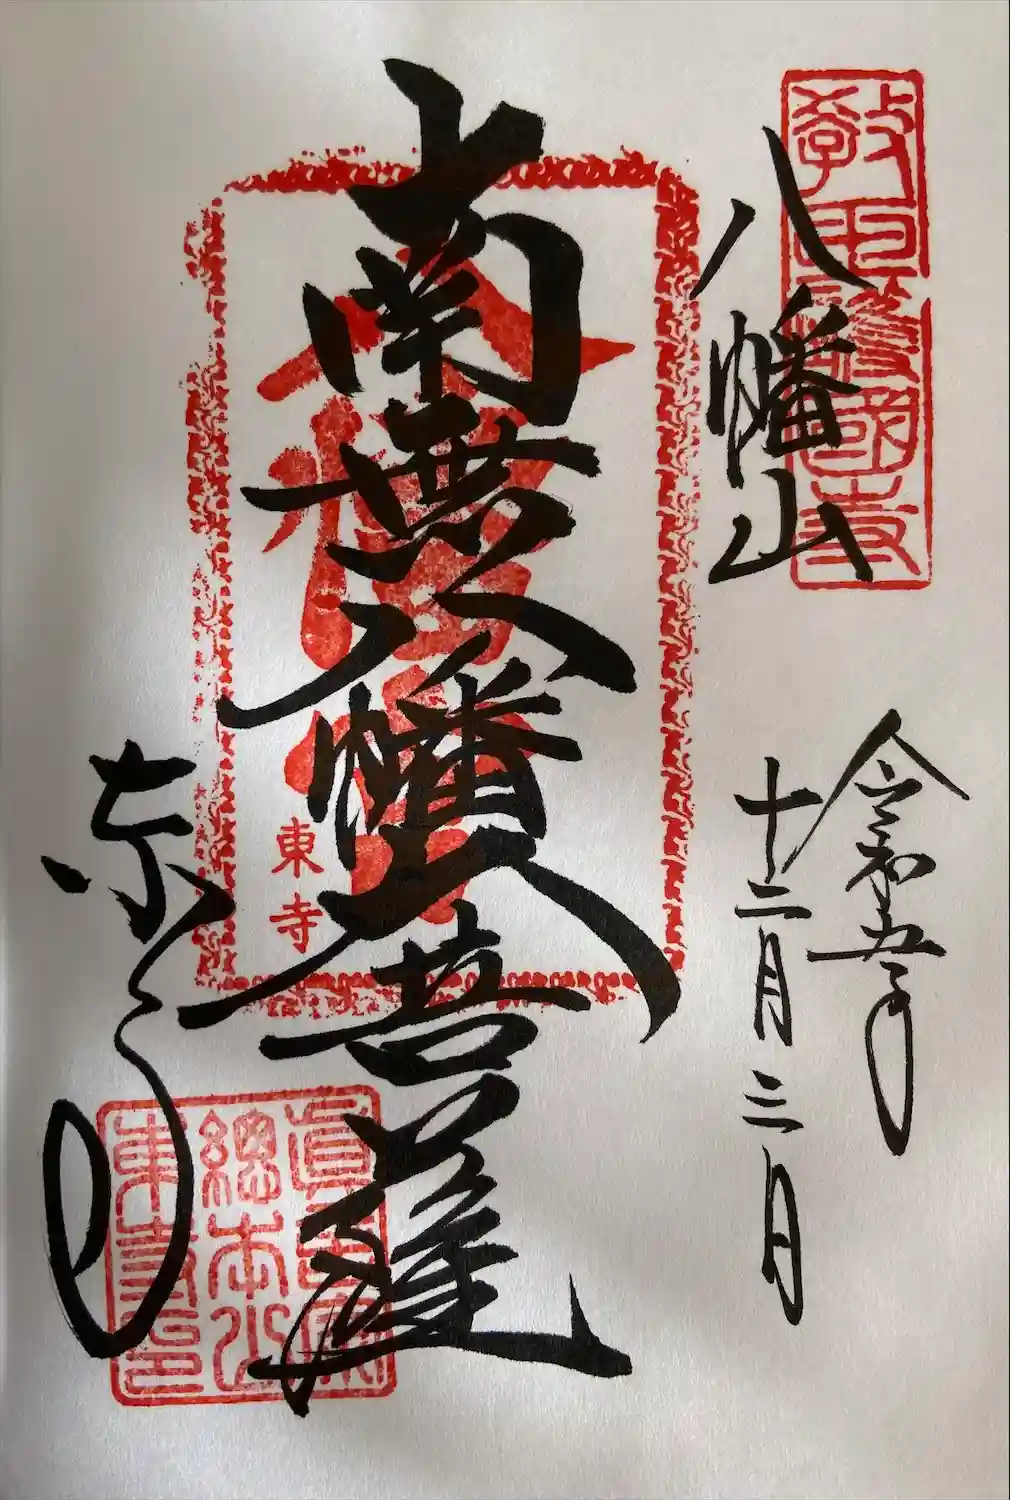 教王護國寺
八幡山
令和五年
十二月三日
南無八幡大菩薩
東寺
東寺
眞言宗
總本山
東寺印